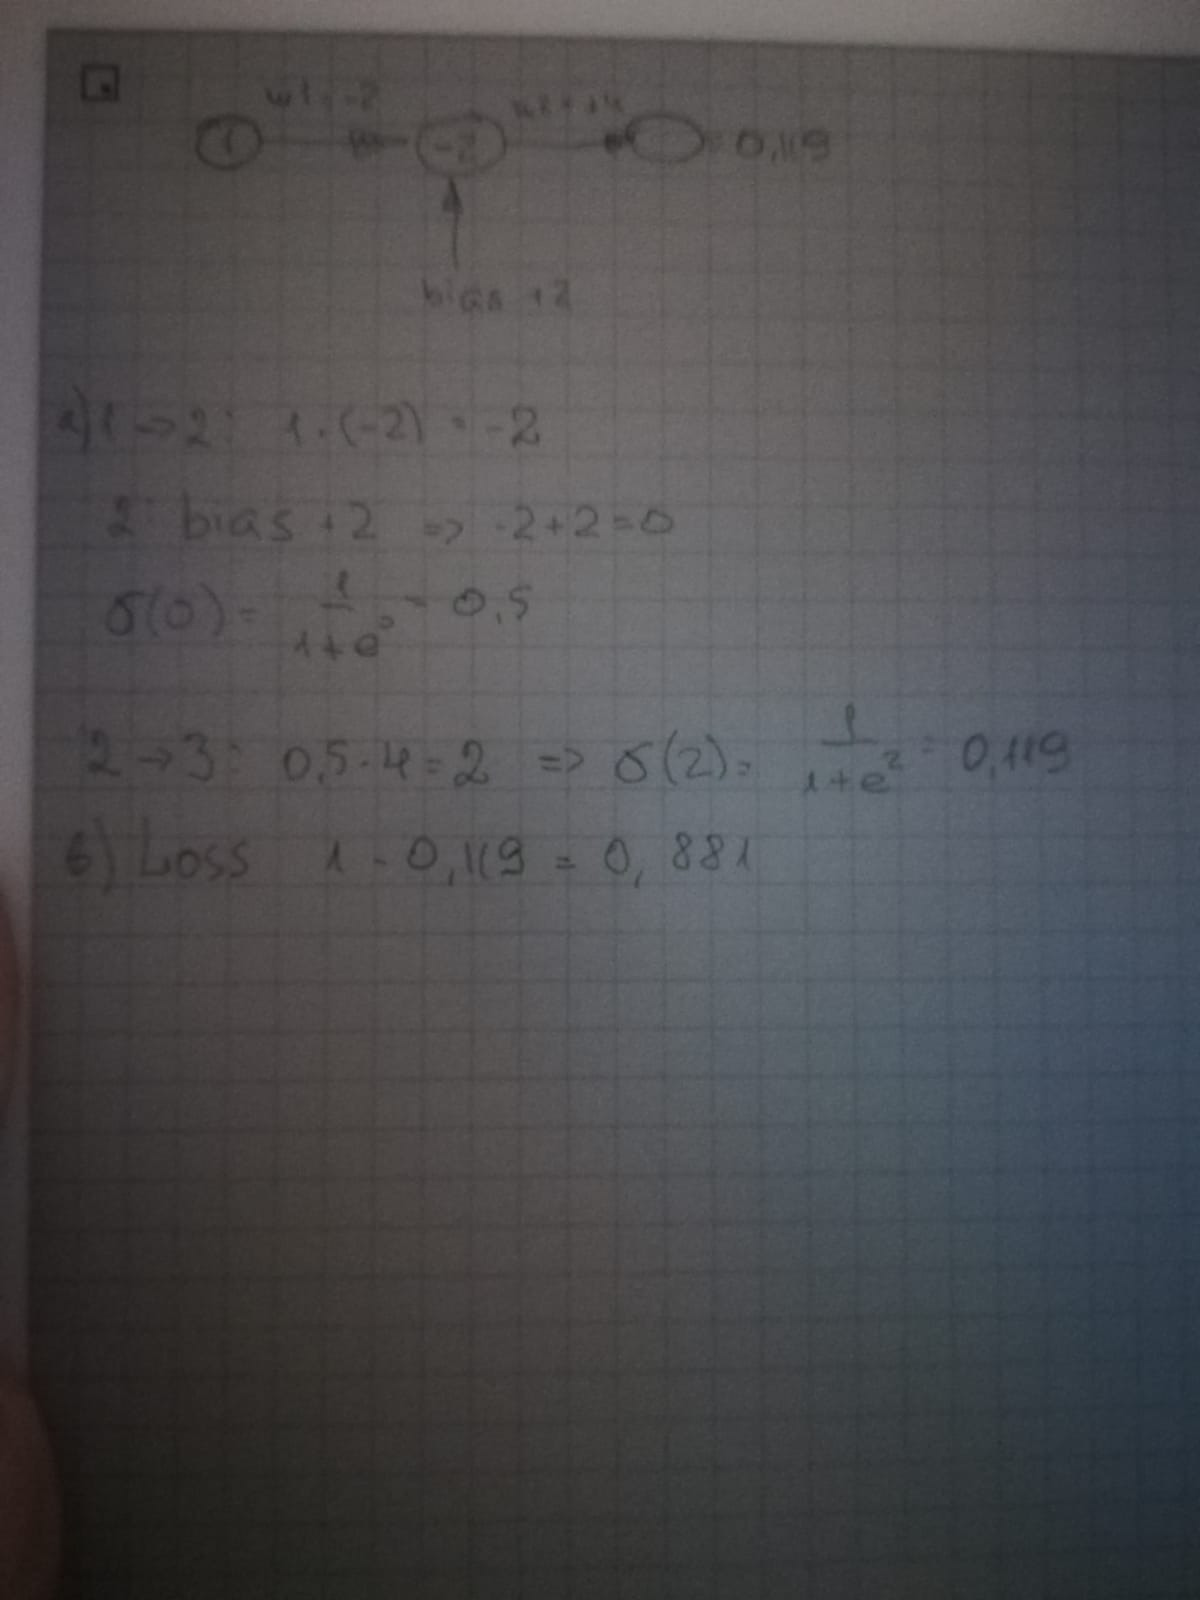 w1 = -2 w2 = +4
1 -2 = 0,119
bias +2
a) 1 → 2: 1 · (-2) = -2
2: bias +2 => -2+2=0
σ(0) = 1/(1+e⁰) = 0,5
2 → 3: 0,5 · 4 = 2 => σ(2) = 1/(1+e²) = 0,119
b) Loss 1 - 0,119 = 0,881